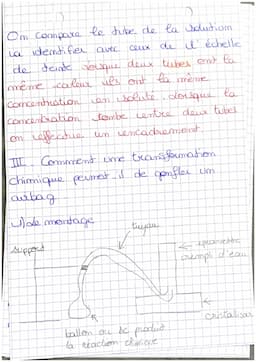 On compare le tube de la solution
à identifier avec ceux de l'échelle
de teinte lorsque deux tubes ont la
même couleur ils ont la même
concentration en soluté lorsque la
concentration tombe entre deux tubes
on effectue un encadrement
III - Comment une transformation
chimique permet-il de gonfler un
airbag
1) le montage
support
tuyau
éprouvette
rempli d'eau
cristalisoir
ballon où se produit
la réaction chimique